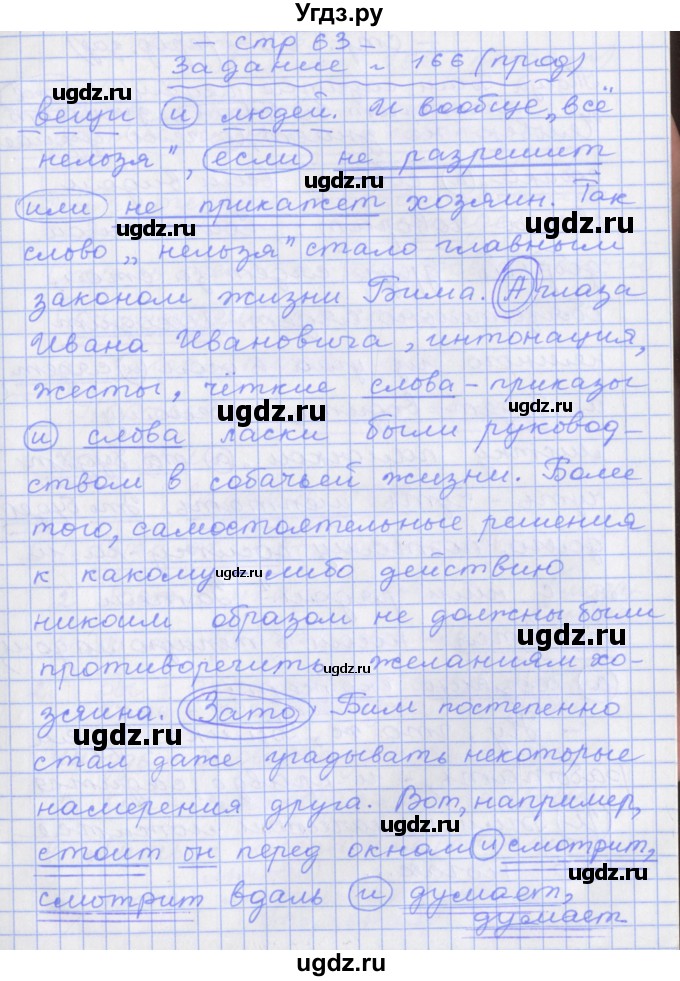 Угдз.ру
- стр 63 -
Задание № 166 (прод)
вещи и людей. И вообще „всё
нельзя", если не разрешит
или не прикажет хозяин. Так
слово „нельзя" стало главным
законом жизни Бима. А глаза
Ивана Ивановича, интонация,
жесты, чёткие слова-приказы
и слова ласки были руковод-
ством в собачьей жизни. Более
того, самостоятельные решения
к какому-либо действию
никоим образом не должны были
противоречить желаниям хо-
зяина. Зато Бим постепенно
стал даже угадывать некоторые
намерения друга. Вот, например,
стоит он перед окном и смотрит,
смотрит вдаль и думает,
думает
ugdz.ru